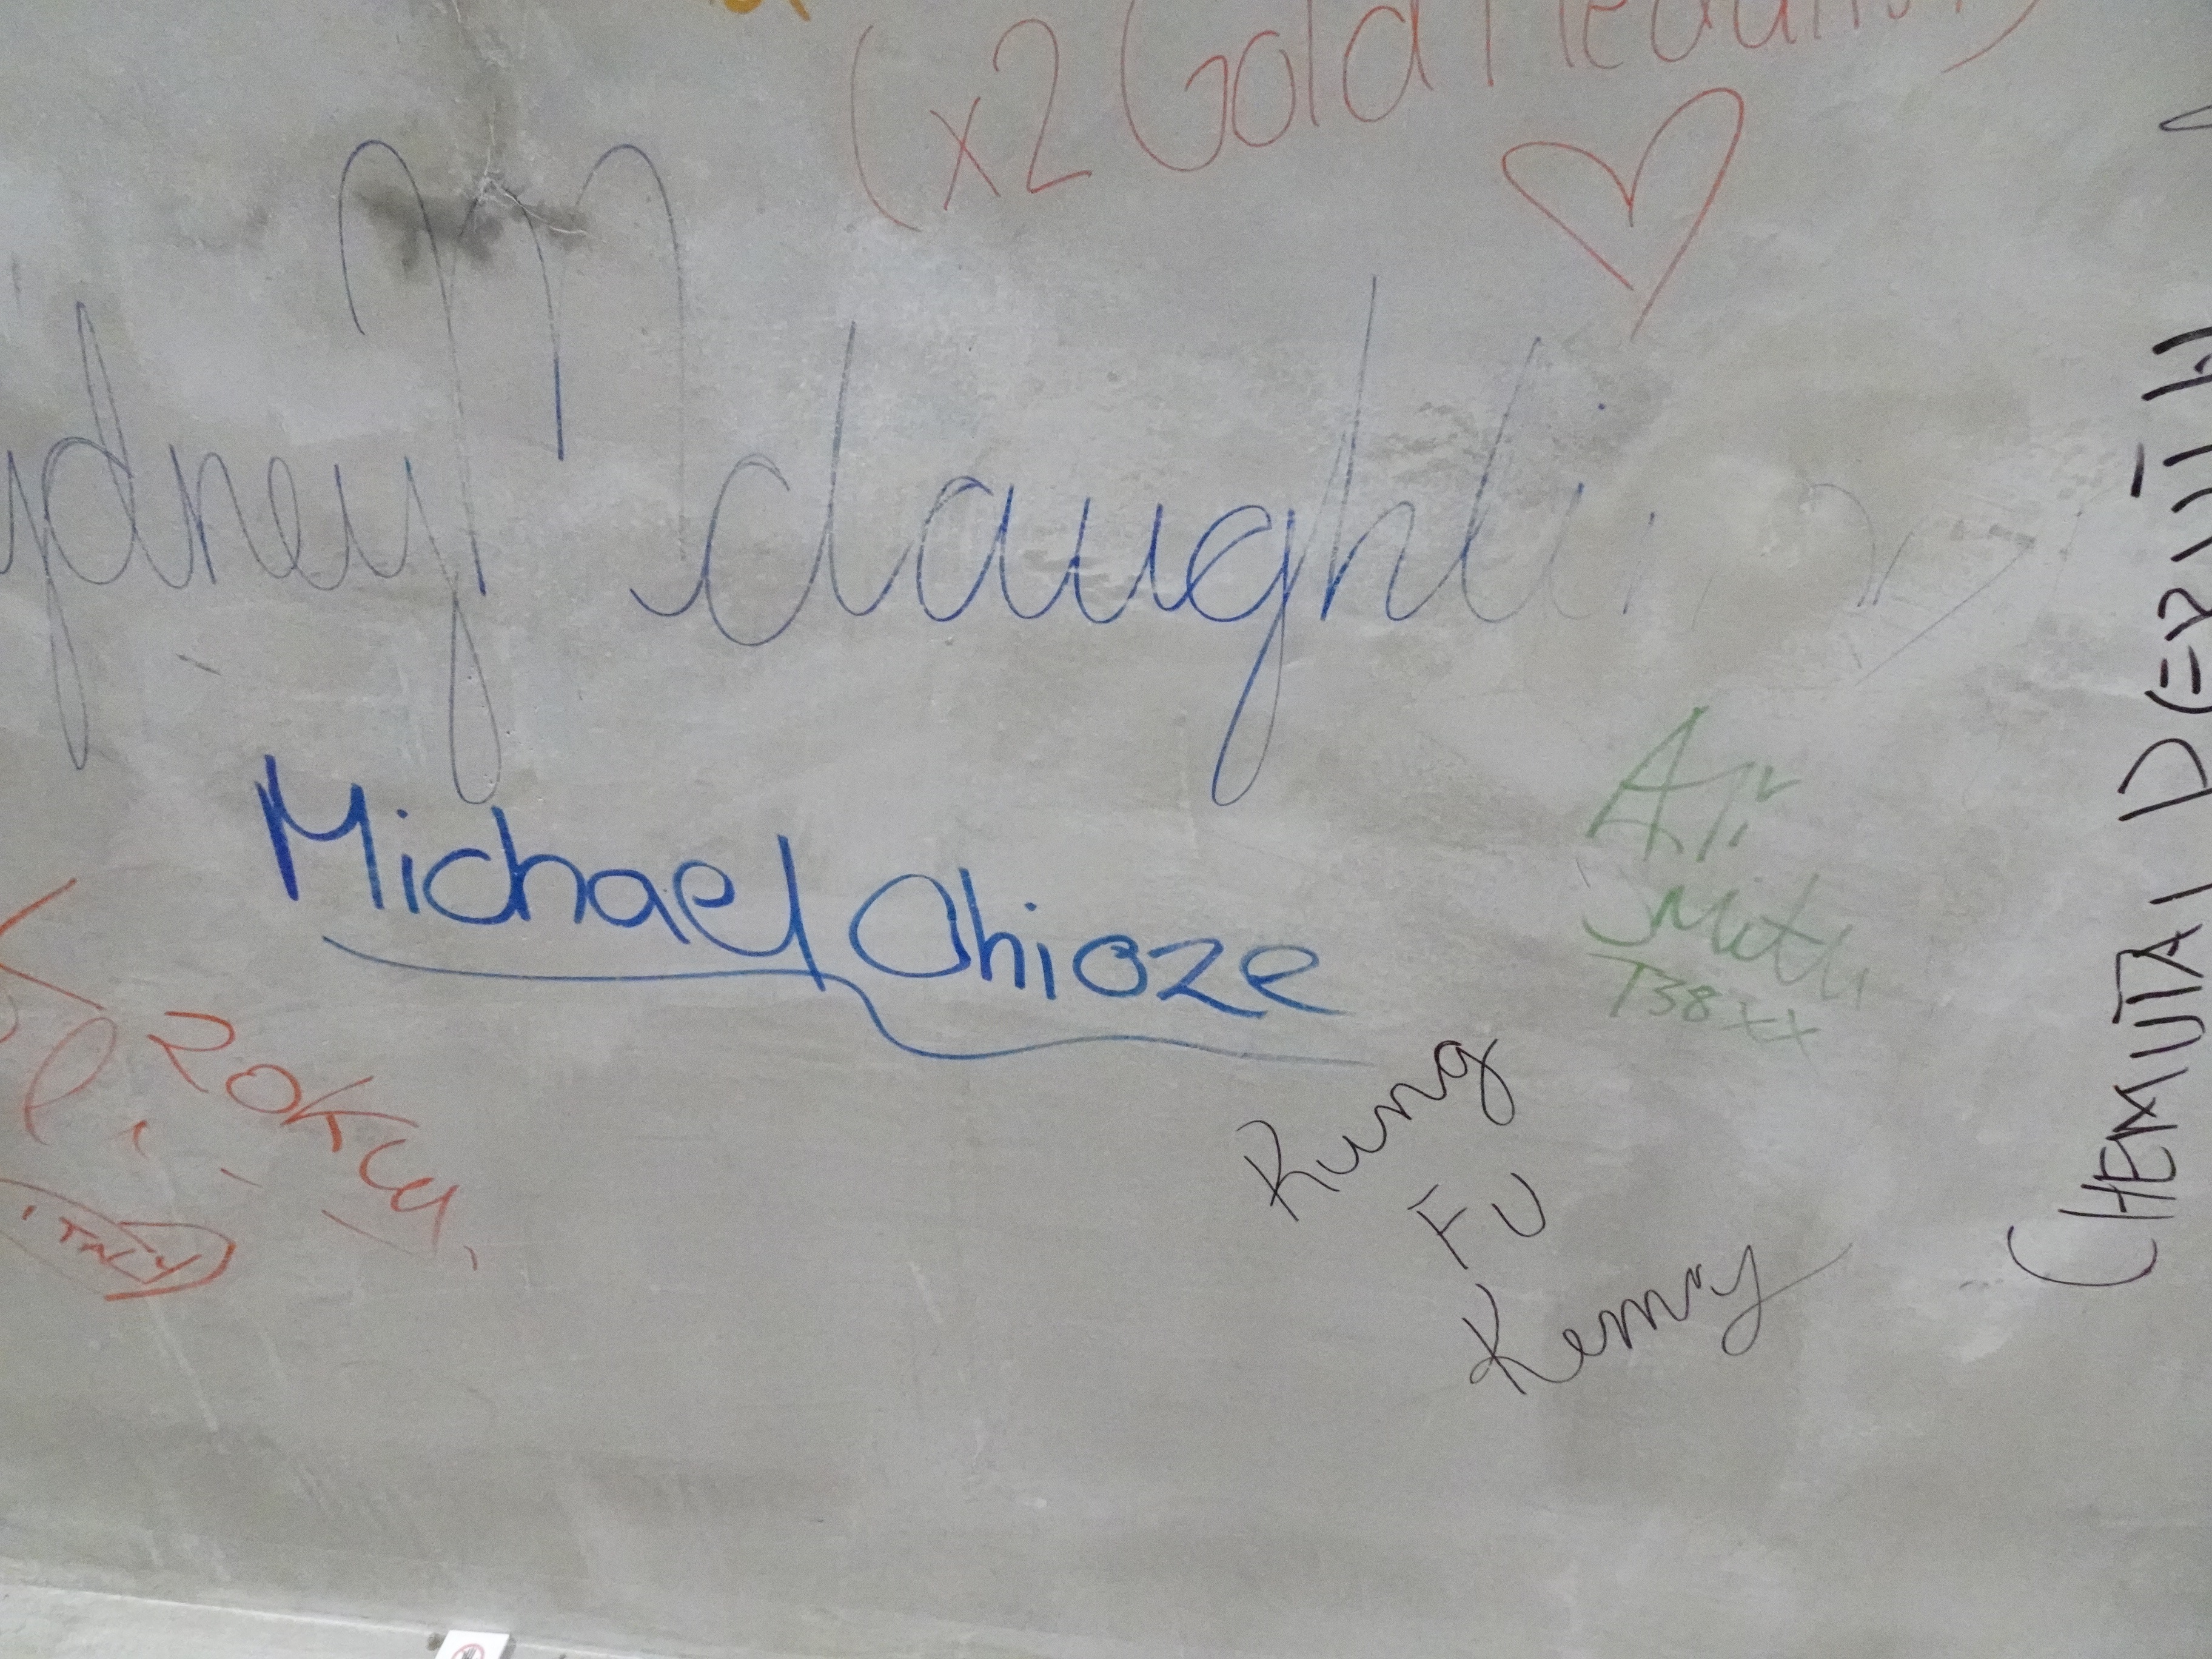 (x2 Gold Medalist)
ydney Mclaughlin
Michael Ohioze
Ari
Smith
T38 xx
Roku
Kung
Fu
Kenny
CHEMUTAI DERUITH